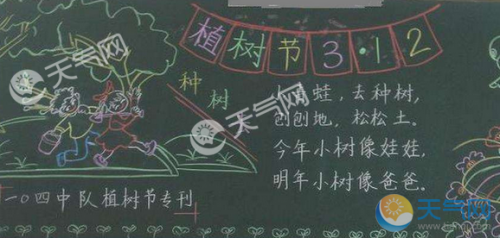 植树节3·12
种树
小青蛙,去种树,
刨刨地,松松土。
今年小树像娃娃,
明年小树像爸爸。
一〇四中队植树节专刊
天气网
天气网
天气网
天气网